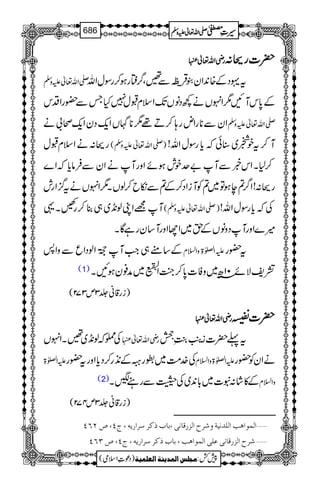 سیرت مصطفیٰ صلی اللہ تعالیٰ علیہ وسلم 686
حضرت ریحانہ رضی اللہ تعالیٰ عنہا
یہ یہود کے خاندان بنو قریظہ سے تھیں، گرفتار ہو کر رسول اللہ صلی اللہ تعالیٰ علیہ وسلم
کے پاس آئیں مگر انہوں نے کچھ دنوں تک اسلام قبول نہیں کیا جس سے حضور اقدس
صلی اللہ تعالیٰ علیہ وسلم ان سے ناراض رہا کرتے تھے مگر ناگہاں ایک دن ایک صحابی نے
آ کر یہ خوشخبری سنائی کہ یا رسول اللہ! (صلی اللہ تعالیٰ علیہ وسلم) ریحانہ نے اسلام قبول
کر لیا۔ اس خبر سے آپ بے حد خوش ہوئے اور آپ نے ان سے فرمایا کہ اے
ریحانہ! اگر تم چاہو تو میں تم کو آزاد کر کے تم سے نکاح کر لوں۔ مگر انہوں نے یہ گزارش
کی کہ یا رسول اللہ! (صلی اللہ تعالیٰ علیہ وسلم) آپ مجھے اپنی لونڈی ہی بنا کر رکھیں۔ یہی
میرے اور آپ دونوں کے حق میں اچھا اور آسان رہے گا۔
یہ حضور علیہ الصلوٰۃ والسلام کے سامنے ہی جب آپ حجۃ الوداع سے واپس
تشریف لائے ۱۰ھ میں وفات پا کر جنت البقیع میں مدفون ہوئیں۔ (1)
(زرقانی جلد۳ ص۲۷۳)
حضرت نفیسہ رضی اللہ تعالیٰ عنہا
یہ پہلے حضرت زینب بنت جحش رضی اللہ تعالیٰ عنہا کی مملوکہ لونڈی تھیں۔ انہوں
نے ان کو حضور علیہ الصلوٰۃ والسلام کی خدمت میں بطور ہبہ کے نذر کر دیا اور یہ حضور علیہ الصلوٰۃ
والسلام کے کاشانۂ نبوت میں باندی کی حیثیت سے رہنے لگیں۔ (2)
(زرقانی جلد۳ ص۲۷۴)
المواھب اللدنیۃ وشرح الزرقانی، باب ذکر سراریہ، ج٤، ص ٤٦٢
شرح الزرقانی علی المواھب، باب ذکر سراریہ، ج٤، ص ٤٦٣
پیش کش: مجلس المدینۃ العلمیۃ (دعوتِ اسلامی)